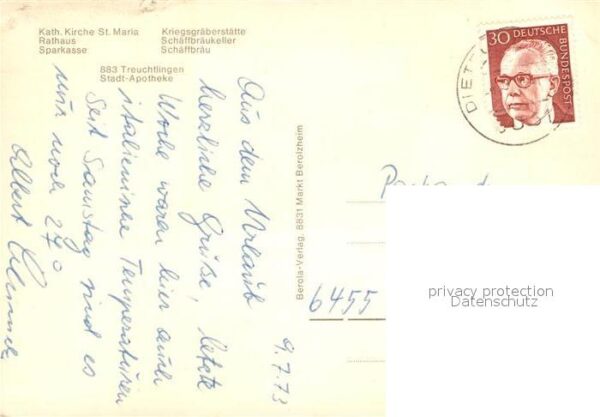 Kath. Kirche St. Maria
Rathaus
Sparkasse
Kriegsgräberstätte
Schäffbräukeller
Schäffbräu
883 Treuchtlingen
Stadt-Apotheke
Aus dem Urlaub
herzliche Grüße, letzte
Woche waren hier auch
italienische Temperaturen
Seit Samstag sind es
nur noch 27°
Albert
9.7.73
Berola-Verlag, 8831 Markt Berolzheim
30 DEUTSCHE BUNDESPOST
DIET
6455
privacy protection
Datenschutz